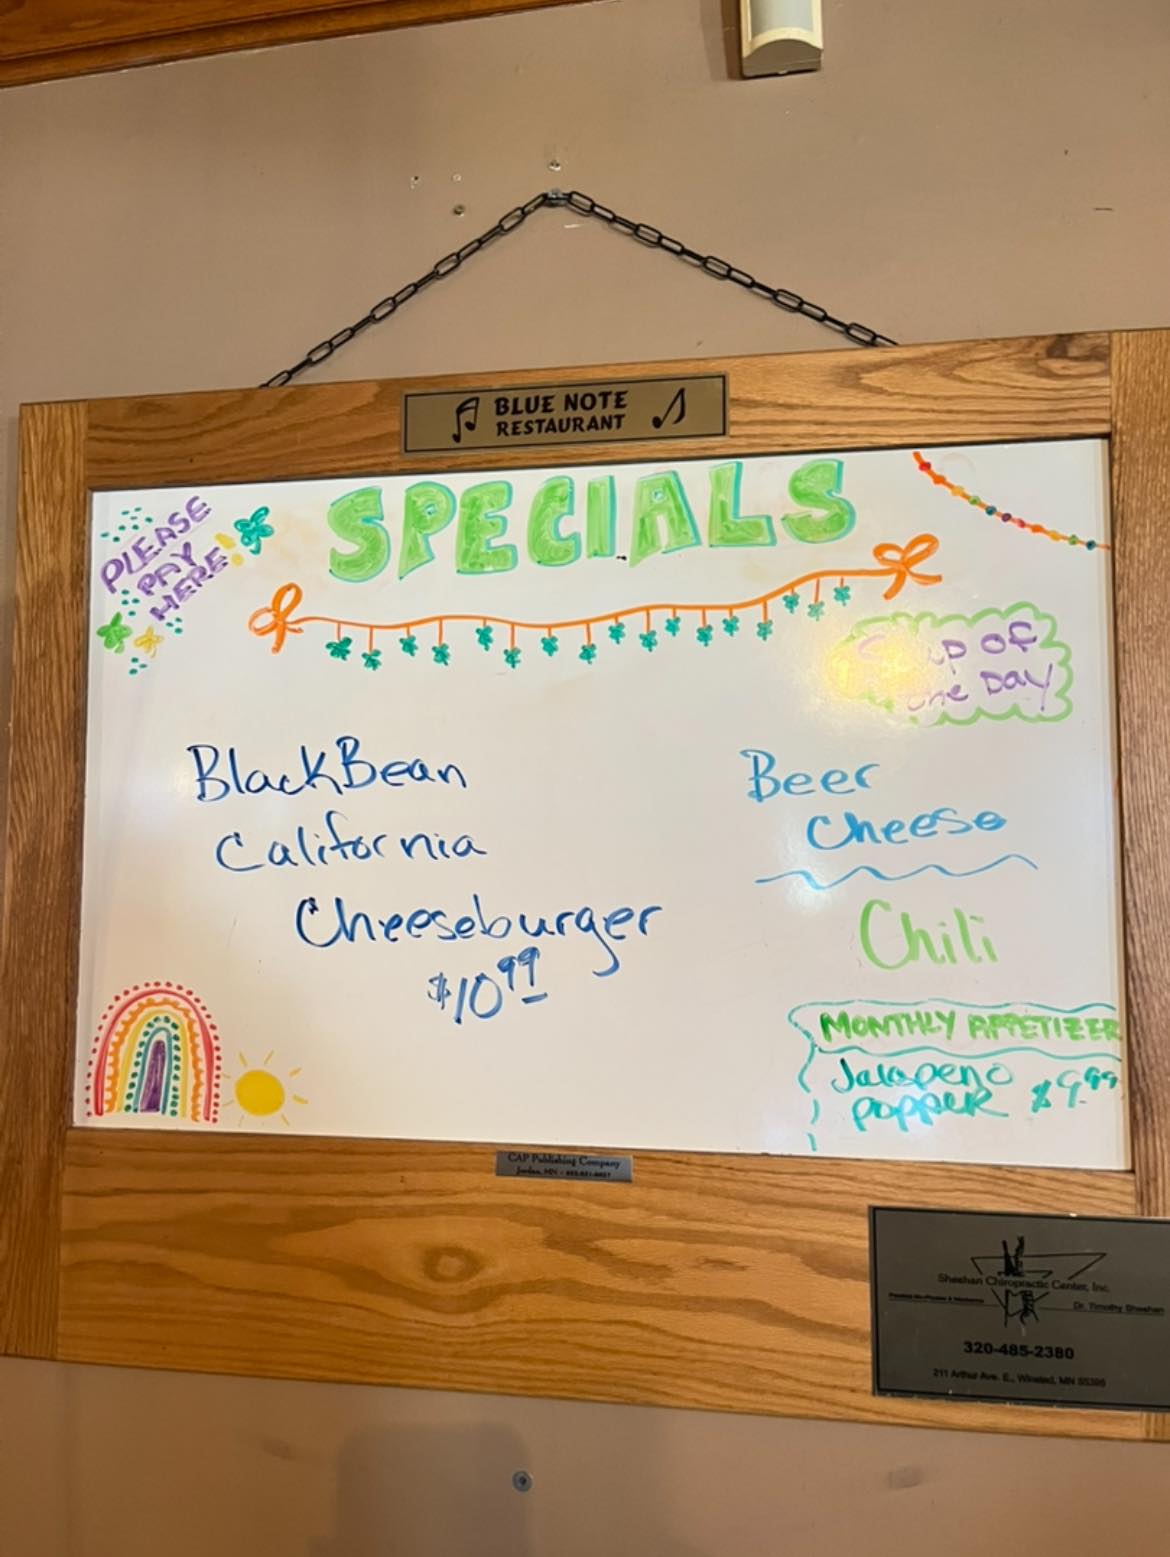 BLUE NOTE
RESTAURANT
SPECIALS
PLEASE
PAY
HERE!
Soup OF
the Day
BlackBean
California
Cheeseburger
$10.99
Beer
Cheese
Chili
MONTHLY APPETIZER
Jalapeno
popper $9.99
CAP Publishing Company
Jordan, MN
Sheehan Chiropractic Center, Inc.
Dr. Timothy Sheehan
320-485-2380
211 Arthur Ave. E., Winsted, MN 55395